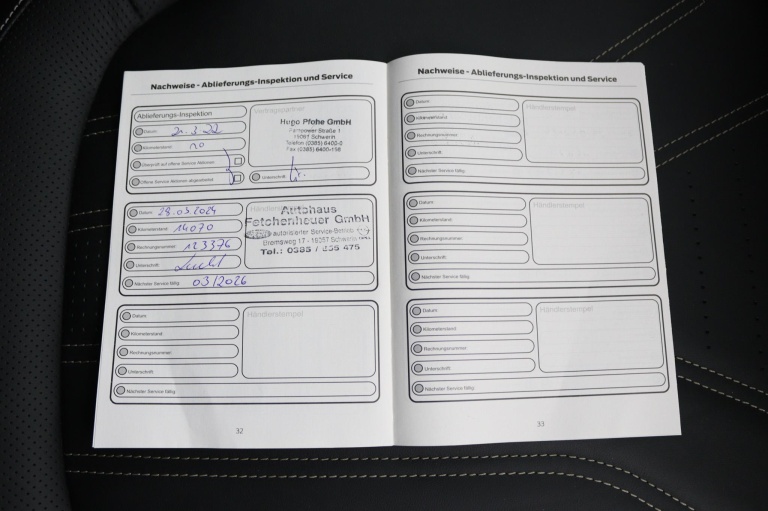 Nachweise - Ablieferungs-Inspektion und Service
Ablieferungs-Inspektion
Vertragspartner
Datum 21.3.22
Kilometerstand 10
Überprüft auf offene Service Aktionen
Offene Service Aktionen abgearbeitet
Hugo Pfohe GmbH
Straße 1
19061 Schwerin
Telefon (0385) 6400-0
Fax (0385) 6400-156
Unterschrift
Datum 28.03.2024
Kilometerstand 14070
Rechnungsnummer 123376
Unterschrift
Nächster Service fällig 03/2026
Autohaus
Fetchenheuer GmbH
autorisierter Service-Betrieb
17 - 19057 Schwerin
Tel.: 0385 /
475
Datum
Kilometerstand
Rechnungsnummer
Unterschrift
Nächster Service fällig
Händlerstempel
32
Nachweise - Ablieferungs-Inspektion und Service
Datum
Kilometerstand
Rechnungsnummer
Unterschrift
Nächster Service fällig
Händlerstempel
Datum
Kilometerstand
Rechnungsnummer
Unterschrift
Nächster Service fällig
Händlerstempel
Datum
Kilometerstand
Rechnungsnummer
Unterschrift
Nächster Service fällig
Händlerstempel
33